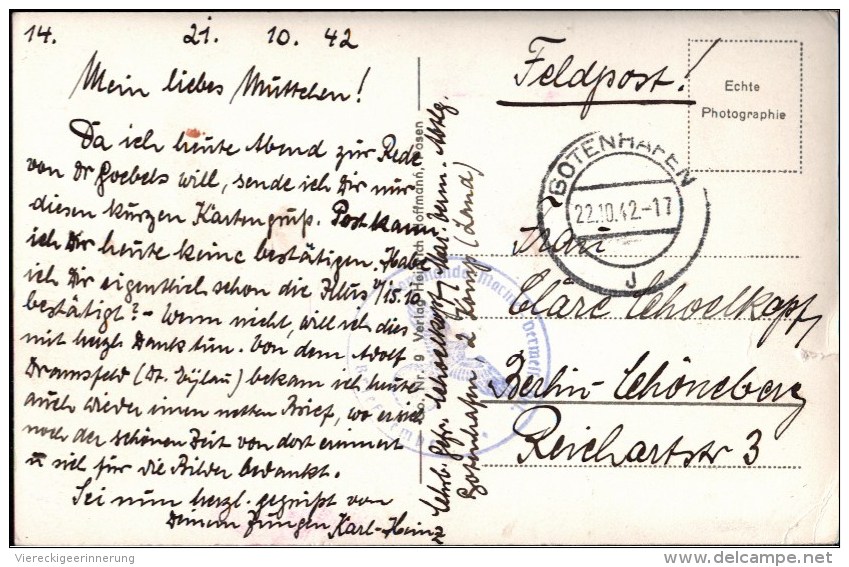 14. 21. 10. 42
Mein liebes Muttchen!
Da ich heute Abend zur Rede
von Dr Goebels will, sende ich Dir nur
diesen kurzen Kartengruß. Post kann
ich Dir heute keine bestätigen. Habe
ich Dir eigentlich schon die Illus v/15.10
bestätigt? – Wenn nicht, will ich dies
mit herzl. Dank tun. Von dem Adolf
Dramsfeld (Dt. Eylau) bekam ich heute
auch wieder einen netten Brief, wo er sich
noch der schönen Zeit von dort erinnert
u sich für die Bilder bedankt.
Sei nun herzl. gegrüßt von
Deinem Jungen Karl-Heinz
Nr. 9 Verlag Heinrich Hoffmann, Posen
Schoelkopf, Mar. Verm. Abtlg.
Gotenhafen 2 Lamp (Land)
Feldpost!
Echte
Photographie
GOTENHAFEN
22.10.42.-17
J
Frau
Cläre Schoelkopf
Berlin-Schöneberg
Reichartstr 3
Viereckigeerinnerung
www.delcampe.net